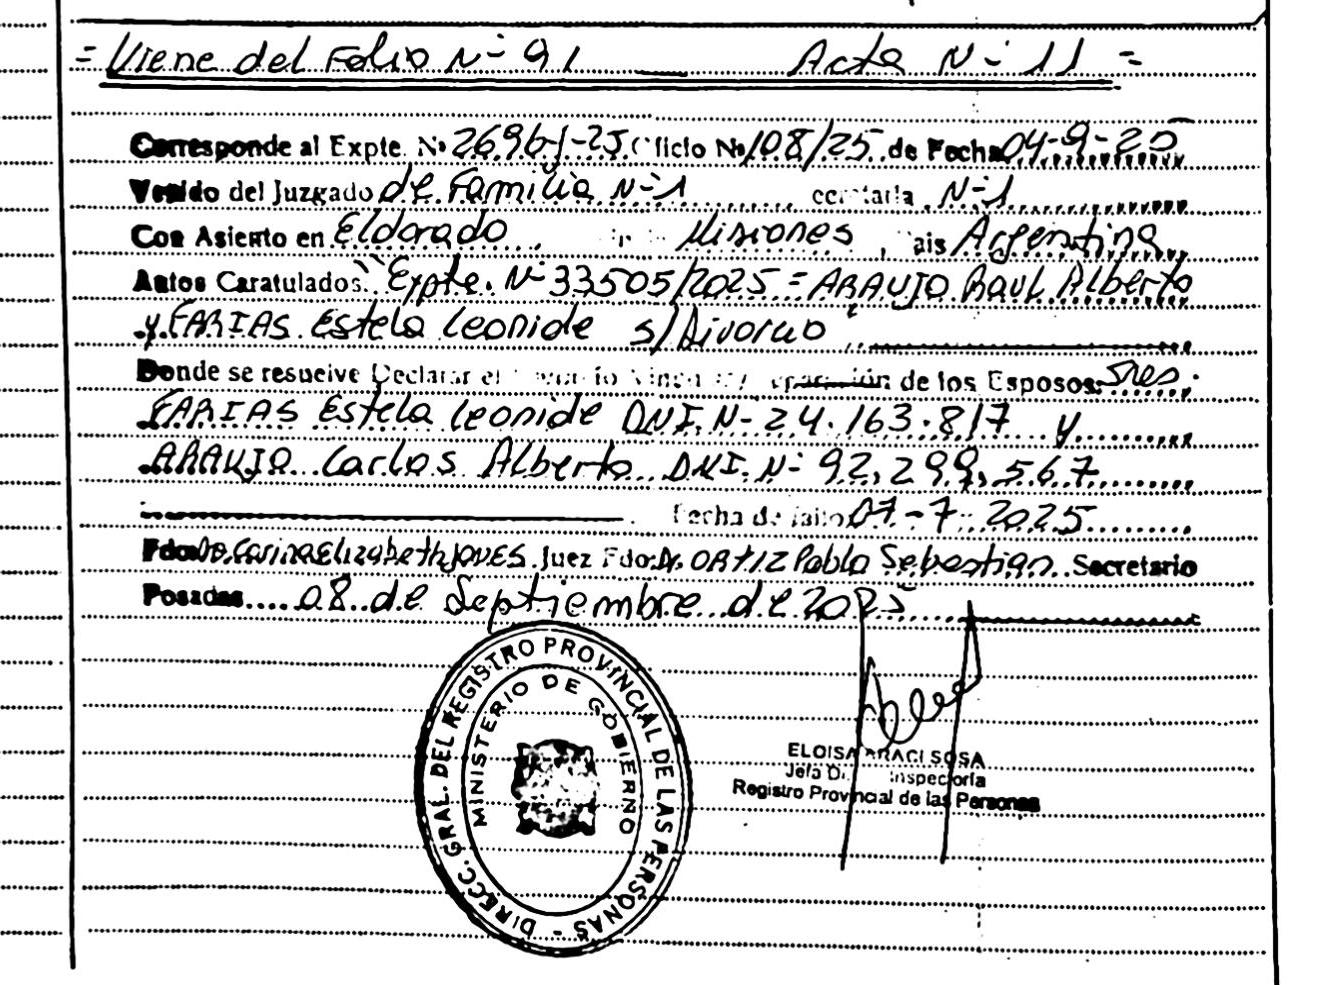 = Viene del Folio N- 91 Acta N- 11 =
Corresponde al Expte. Nº 2696-J-25 Oficio Nº 108/25 de Fecha 04-9-25
Venido del Juzgado de Familia N-1 Secretaria N-1
Con Asiento en Eldorado Misiones, País Argentina
Autos Caratulados "Expte. N- 33505/2025 = ARAUJO Raul Alberto
y FARIAS Estela Leonide s/Divorcio"
Donde se resuelve Declarar el Divorcio Vincular de los Esposos: Sres.
FARIAS Estela Leonide DNI. N- 24.163.817 y
ARAUJO Carlos Alberto DNI. N- 92.299.567
Fecha de fallo 07-7-2025
Fdo: Dr. Carina Elizabeth JONES. Juez Fdo: Dr. ORTIZ Pablo Sebastian Secretario
Posadas 08 de Septiembre de 2025
DIRECC. GRAL. DEL REGISTRO PROVINCIAL DE LAS PERSONAS -
MINISTERIO DE GOBIERNO
ELOISA ARACI SOSA
Jefa Inspectoría
Registro Provincial de las Personas